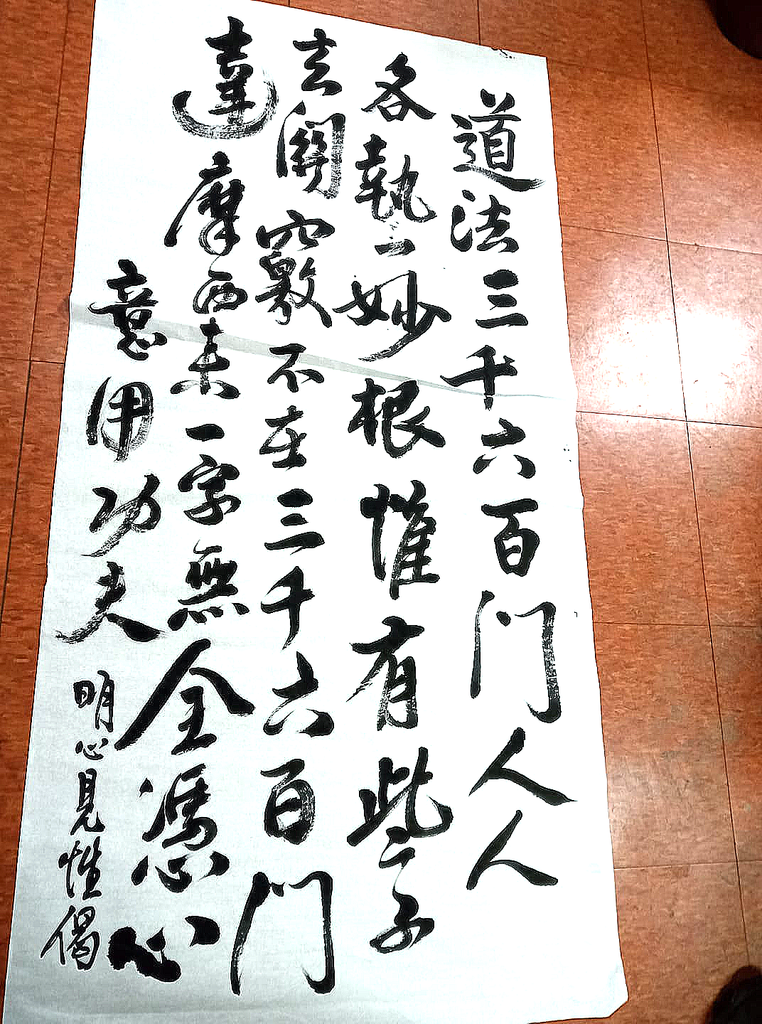 道法三千六百门人人
各執一妙根惟有些子
玄關竅不在三千六百门
達摩西来一字無全憑心
意用功夫
明心見性偈